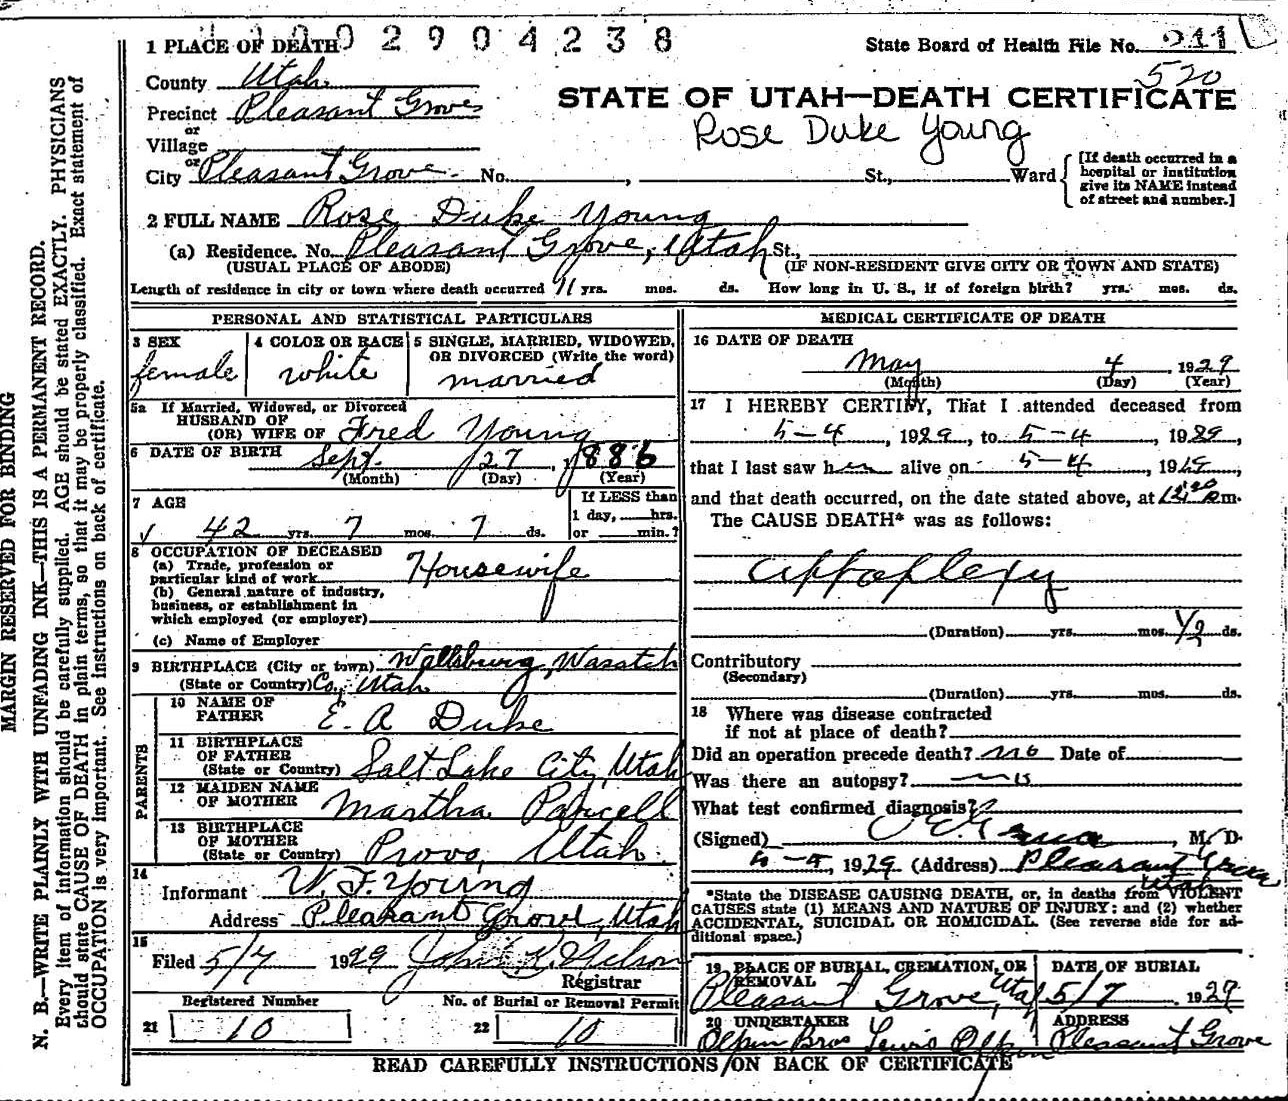 1 PLACE OF DEATH
2904238
State Board of Health File No. 211
County Utah
520
Precinct Pleasant Grove
STATE OF UTAH—DEATH CERTIFICATE
or
Village
Rose Duke Young
or
City Pleasant Grove. No. , St., Ward
[If death occurred in a hospital or institution give its NAME instead of street and number.]
2 FULL NAME Rose Duke Young
(a) Residence. No. Pleasant Grove, Utah St.,
(USUAL PLACE OF ABODE) (IF NON-RESIDENT GIVE CITY OR TOWN AND STATE)
Length of residence in city or town where death occurred 11 yrs. mos. ds. How long in U. S., if of foreign birth? yrs. mos. ds.
PERSONAL AND STATISTICAL PARTICULARS
3 SEX female
4 COLOR OR RACE white
5 SINGLE, MARRIED, WIDOWED, OR DIVORCED (Write the word) married
5a If Married, Widowed, or Divorced
HUSBAND OF
(OR) WIFE OF Fred Young
6 DATE OF BIRTH Sept. 27, 1886
(Month) (Day) (Year)
7 AGE
If LESS than
1 day, hrs.
42 yrs. 7 mos. 7 ds. or min.?
8 OCCUPATION OF DECEASED
(a) Trade, profession or
particular kind of work Housewife
(b) General nature of industry,
business, or establishment in
which employed (or employer)
(c) Name of Employer
9 BIRTHPLACE (City or town) Wallsburg, Wasatch
(State or Country) Co, Utah
PARENTS
10 NAME OF
FATHER E. A Duke
11 BIRTHPLACE
OF FATHER
(State or Country) Salt Lake City, Utah
12 MAIDEN NAME
OF MOTHER Martha Purcell
13 BIRTHPLACE
OF MOTHER
(State or Country) Provo, Utah.
14
Informant W. F. Young
Address Pleasant Grove, Utah
15
Filed 5/7 1929 John K. Nelson
Registrar
Registered Number No. of Burial or Removal Permit
21 10 22 10
MEDICAL CERTIFICATE OF DEATH
16 DATE OF DEATH
May 4, 1929
(Month) (Day) (Year)
17 I HEREBY CERTIFY, That I attended deceased from
5-4, 1929, to 5-4, 1929,
that I last saw her alive on 5-4, 1929,
and that death occurred, on the date stated above, at m.
The CAUSE DEATH* was as follows:
appoplexy
(Duration) yrs. mos. 1/2 ds.
Contributory
(Secondary)
(Duration) yrs. mos. ds.
18 Where was disease contracted
if not at place of death?
Did an operation precede death? no Date of
Was there an autopsy? no
What test confirmed diagnosis?
(Signed) , M. D.
1929 (Address) Pleasant Grove
Utah
*State the DISEASE CAUSING DEATH, or, in deaths from VIOLENT
CAUSES state (1) MEANS AND NATURE OF INJURY; and (2) whether
ACCIDENTAL, SUICIDAL OR HOMICIDAL. (See reverse side for ad-
ditional space.)
19 PLACE OF BURIAL, CREMATION, OR REMOVAL
Pleasant Grove, Utah
DATE OF BURIAL
5/7, 1929
20 UNDERTAKER
Olpin Bros Lewis Olpin
ADDRESS
Pleasant Grove
READ CAREFULLY INSTRUCTIONS ON BACK OF CERTIFICATE
MARGIN RESERVED FOR BINDING
N. B.—WRITE PLAINLY WITH UNFADING INK—THIS IS A PERMANENT RECORD.
Every item of information should be carefully supplied. AGE should be stated EXACTLY. PHYSICIANS
should state CAUSE OF DEATH in plain terms, so that it may be properly classified. Exact statement of
OCCUPATION is very important. See instructions on back of certificate.